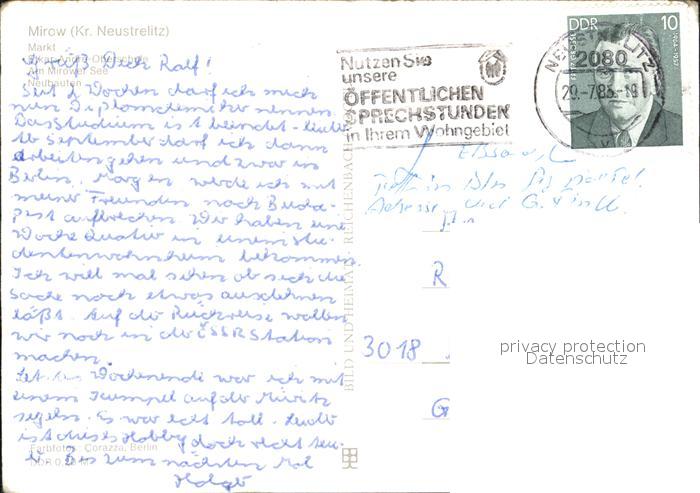 Mirow (Kr. Neustrelitz)
Markt
Am Mirower See
Neubauten
Grüß Dich Ralf!
Seit 2 Wochen darf ich mich
nun Diplomchemiker nennen.
Das Studium ist beendet -
Ab September darf ich dann
arbeiten gehen und zwar in
Berlin. Morgen werde ich mit
meiner Freundin nach Buda-
pest aufbrechen. Wir haben eine
Woche Quartier in einem Stu-
dentenwohnheim bekommen.
Ich will mal sehen ob sich die
Sache noch etwas ausdehnen
läßt. Auf der Rückreise wollen
wir noch in der ČSSR Station
machen.
Letztes Wochenende war ich mit
einem Kumpel auf der Müritz
segeln. Es war echt toll. Leider
ist dieses Hobby doch recht teu-
er. Bis zum nächsten Mal
Holger
Farbfotos: Corazza, Berlin
BILD UND HEIMAT REICHENBACH
Nutzen Sie
unsere
ÖFFENTLICHEN
SPRECHSTUNDEN
in Ihrem Wohngebiet
DDR 10
NEUSTRELITZ
2080
29.-7.85-19
Adresse und G.
R
3018
G
privacy protection
Datenschutz